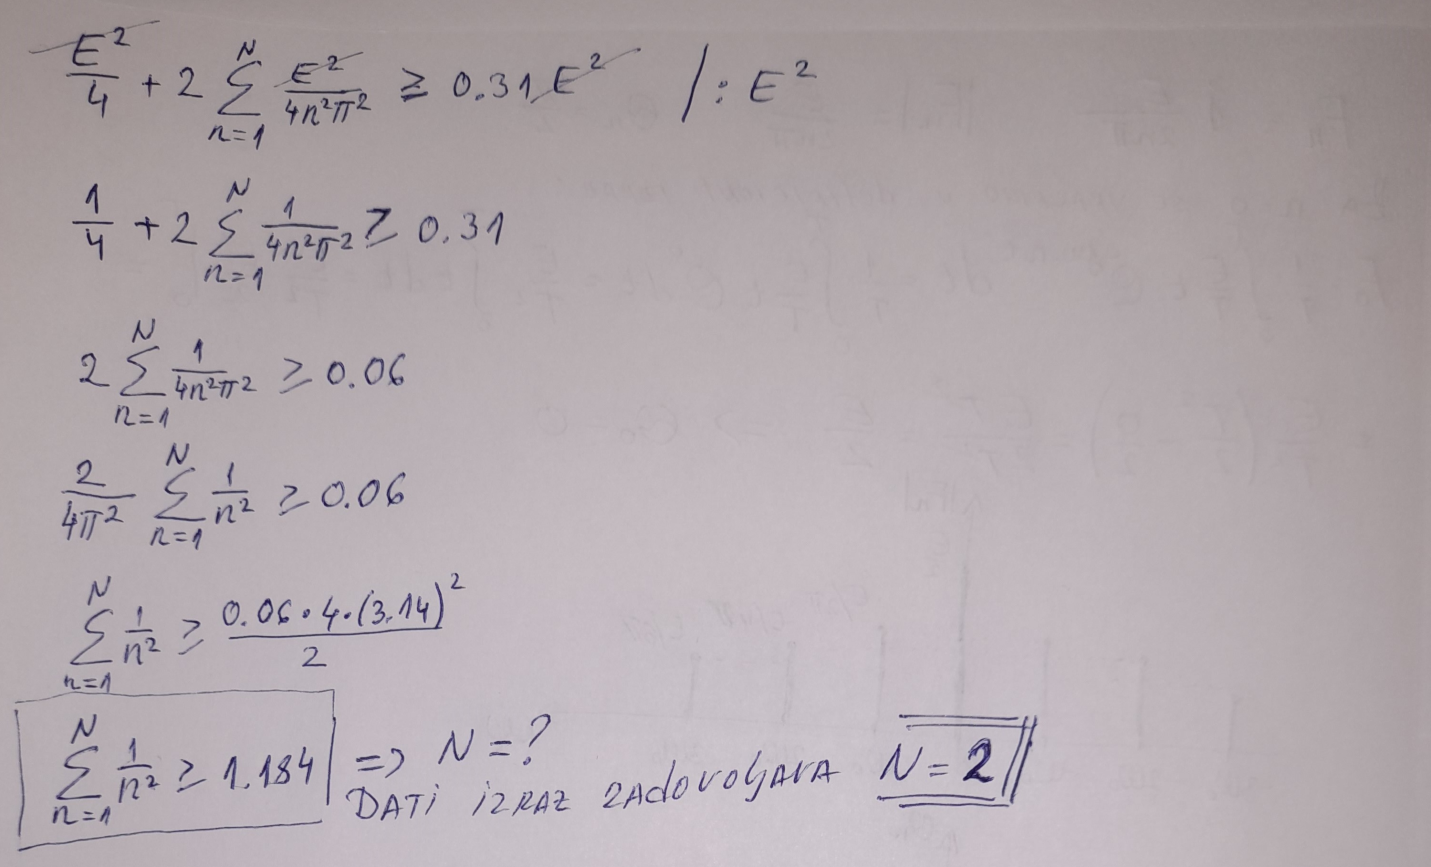 E²/4 + 2 N Σ n=1 E²/4n²π² ≥ 0.31 E² /: E²
1/4 + 2 N Σ n=1 1/4n²π² ≥ 0.31
2 N Σ n=1 1/4n²π² ≥ 0.06
2/4π² N Σ n=1 1/n² ≥ 0.06
N Σ n=1 1/n² ≥ 0.06·4·(3.14)²/2
N Σ n=1 1/n² ≥ 1.184 => N = ?
DATI IZRAZ ZADOVOLJAVA N = 2